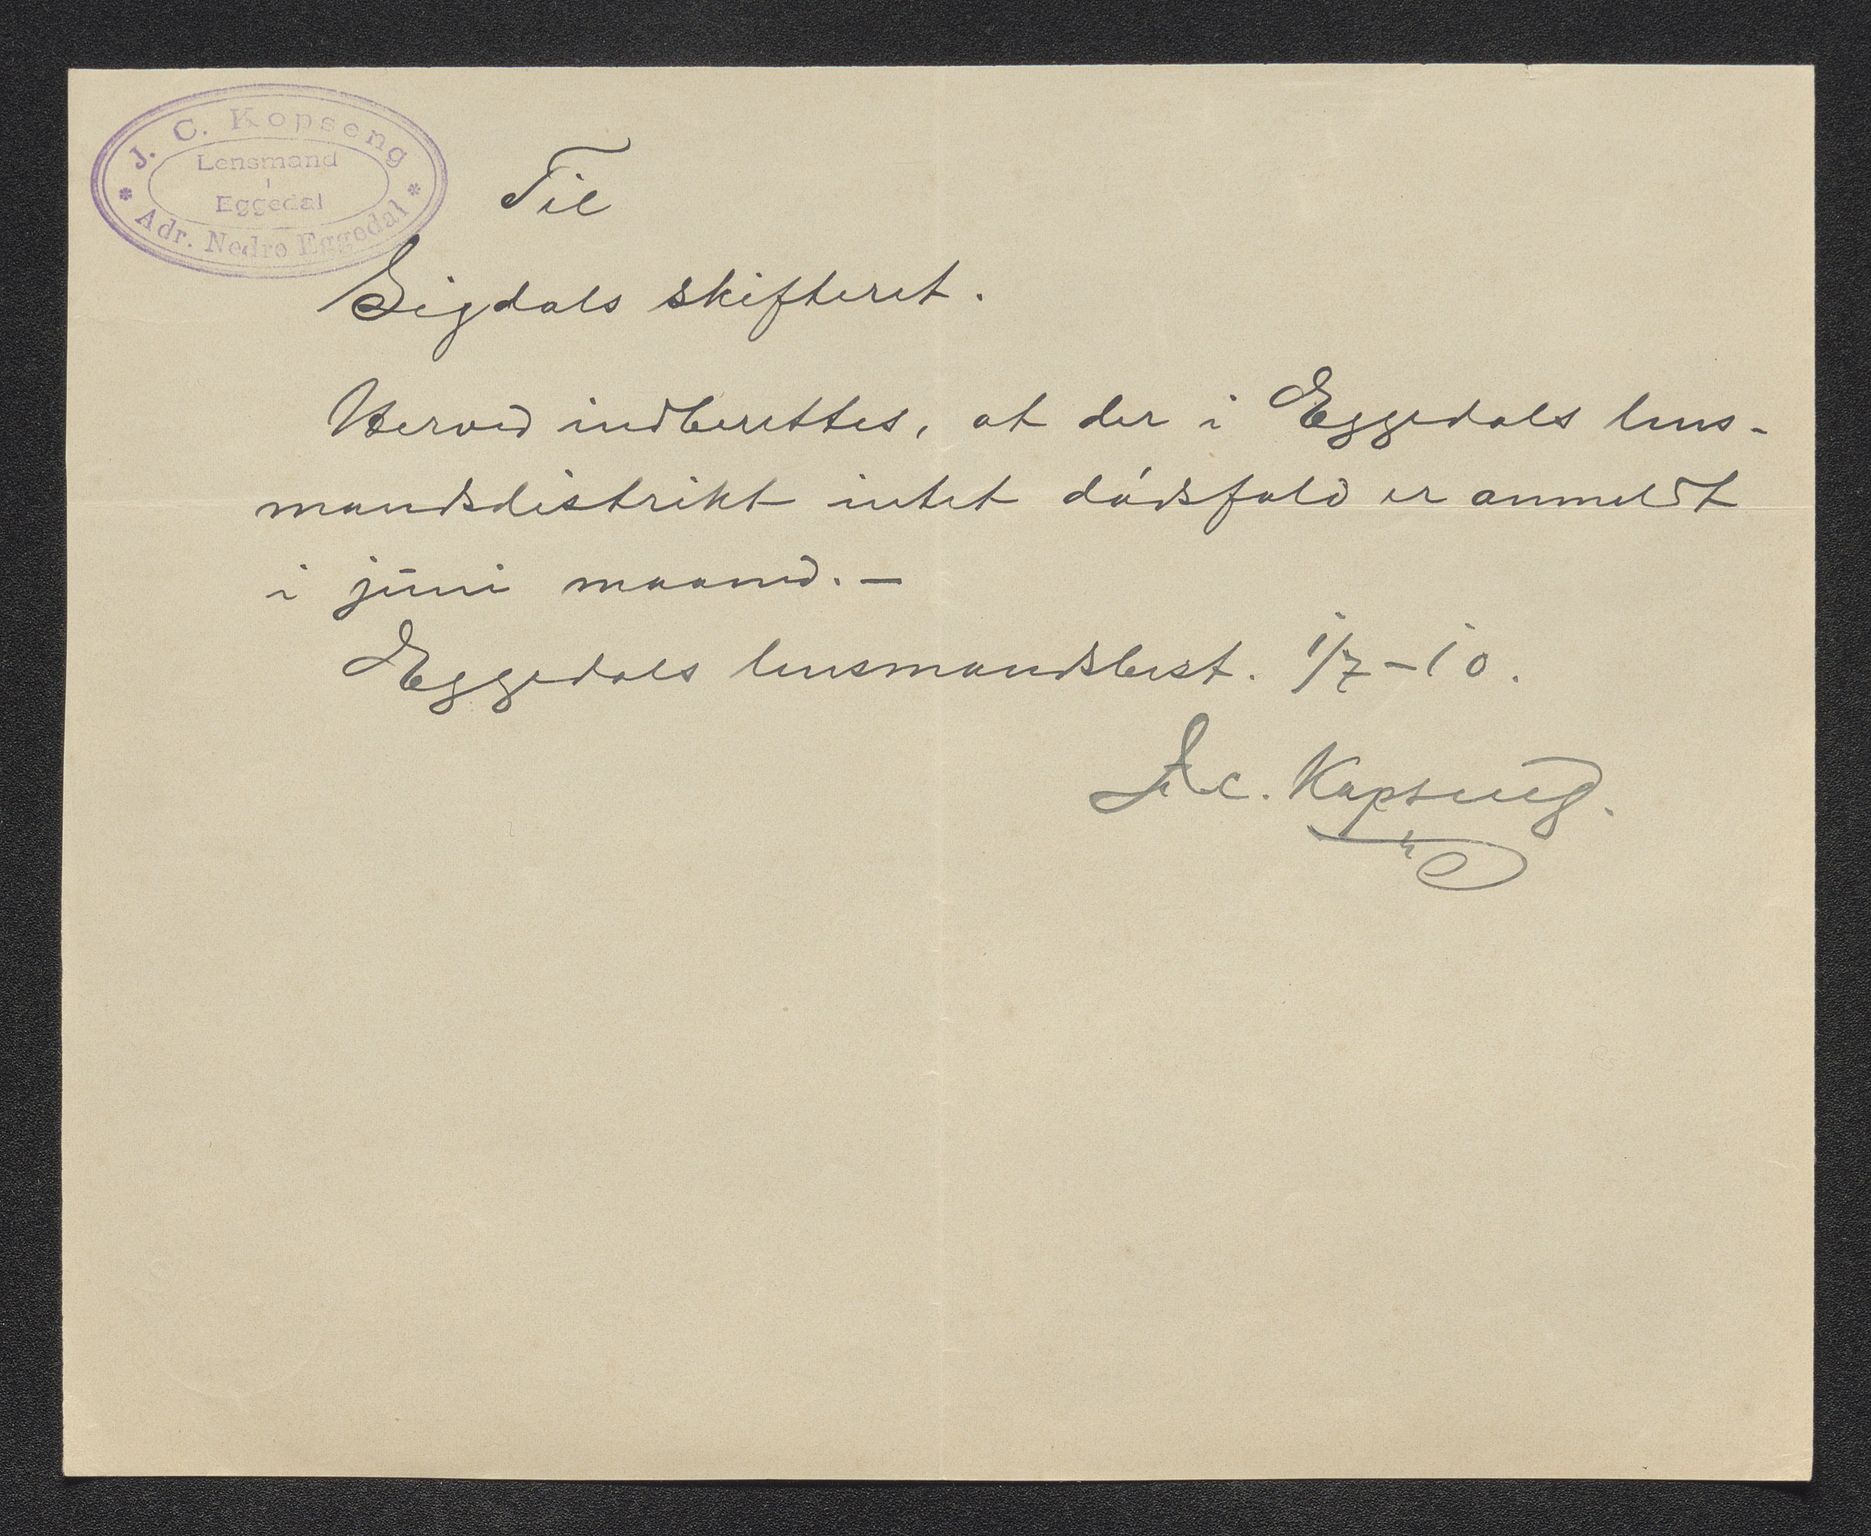 J. C. Kopseng
Lensmand
i
Eggedal
* Adr. Nedre Eggedal *
Til
Sigdals skifteret.
Herved indberettes, at der i Eggedals lens-
mandsdistrikt intet dódsfald er anmeldt
i juni maaned. —
Eggedals lensmandsbest. 1/7 – 10.
J. C. Kopseng.